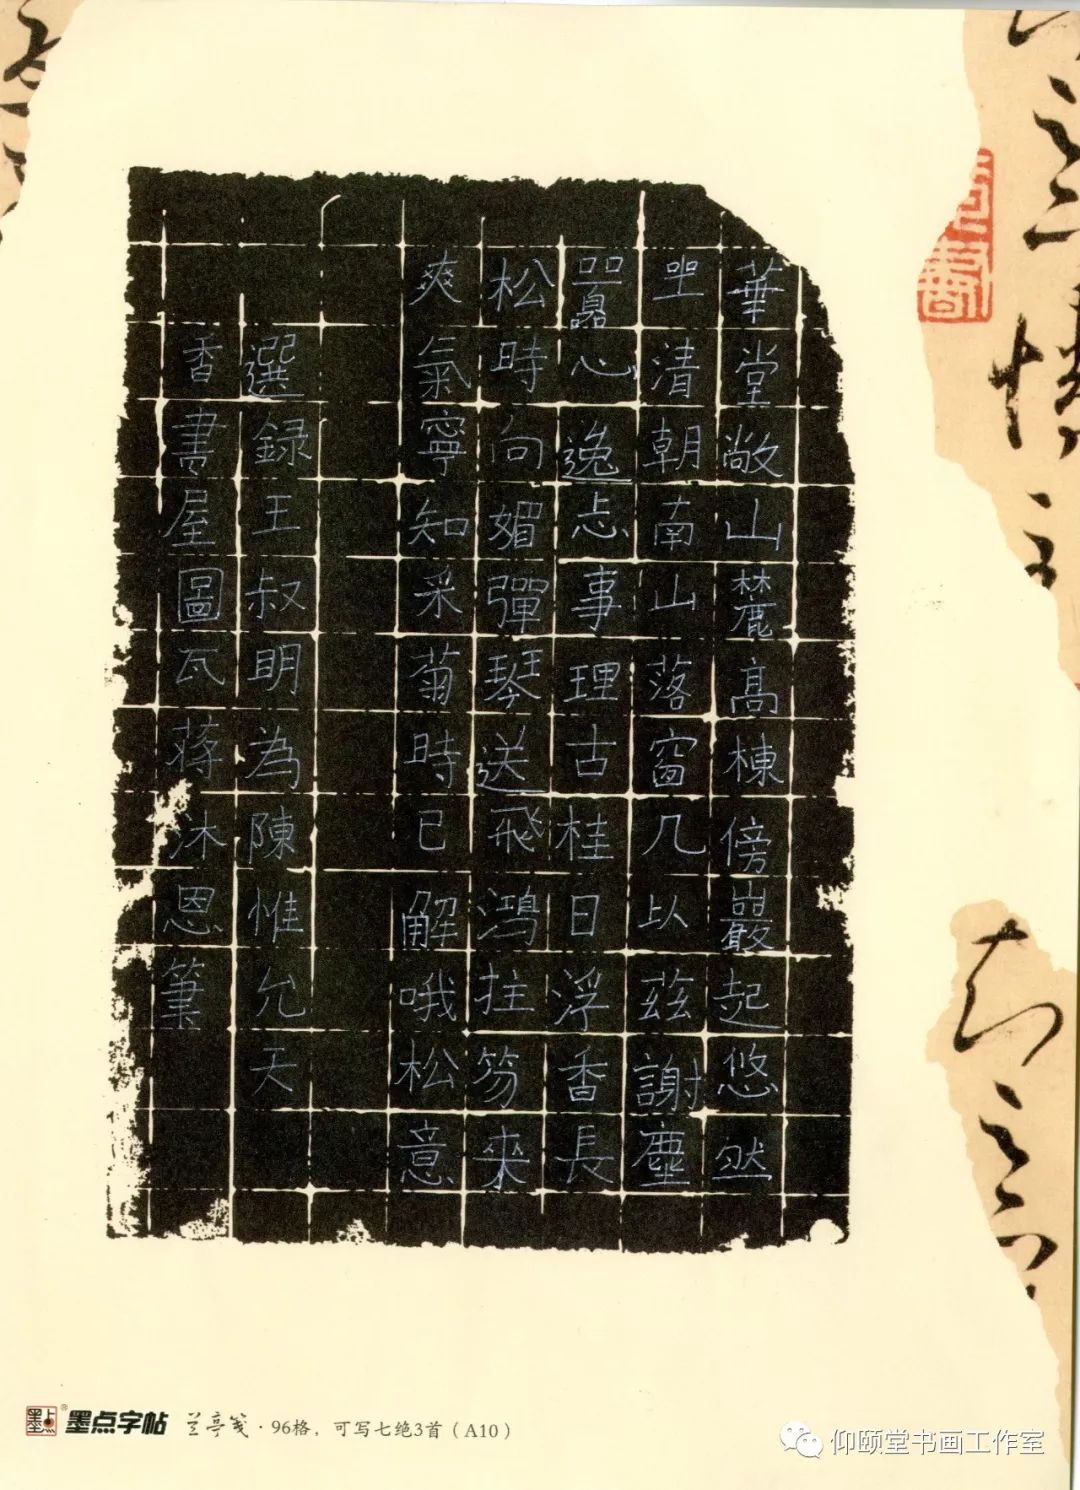 華堂敞山麓高棟傍巖起悠然
坐清朝南山落窗几以茲謝塵
囂心逸忘事理古桂日浮香長
松時向媚彈琴送飛鴻拄笏來
爽氣寧知采菊時已解哦松意
選録王叔明為陳惟允天
香書屋圖瓦蒋沐恩筆
墨点字帖
兰亭笺·96格，可写七绝3首（A10）
仰颐堂书画工作室